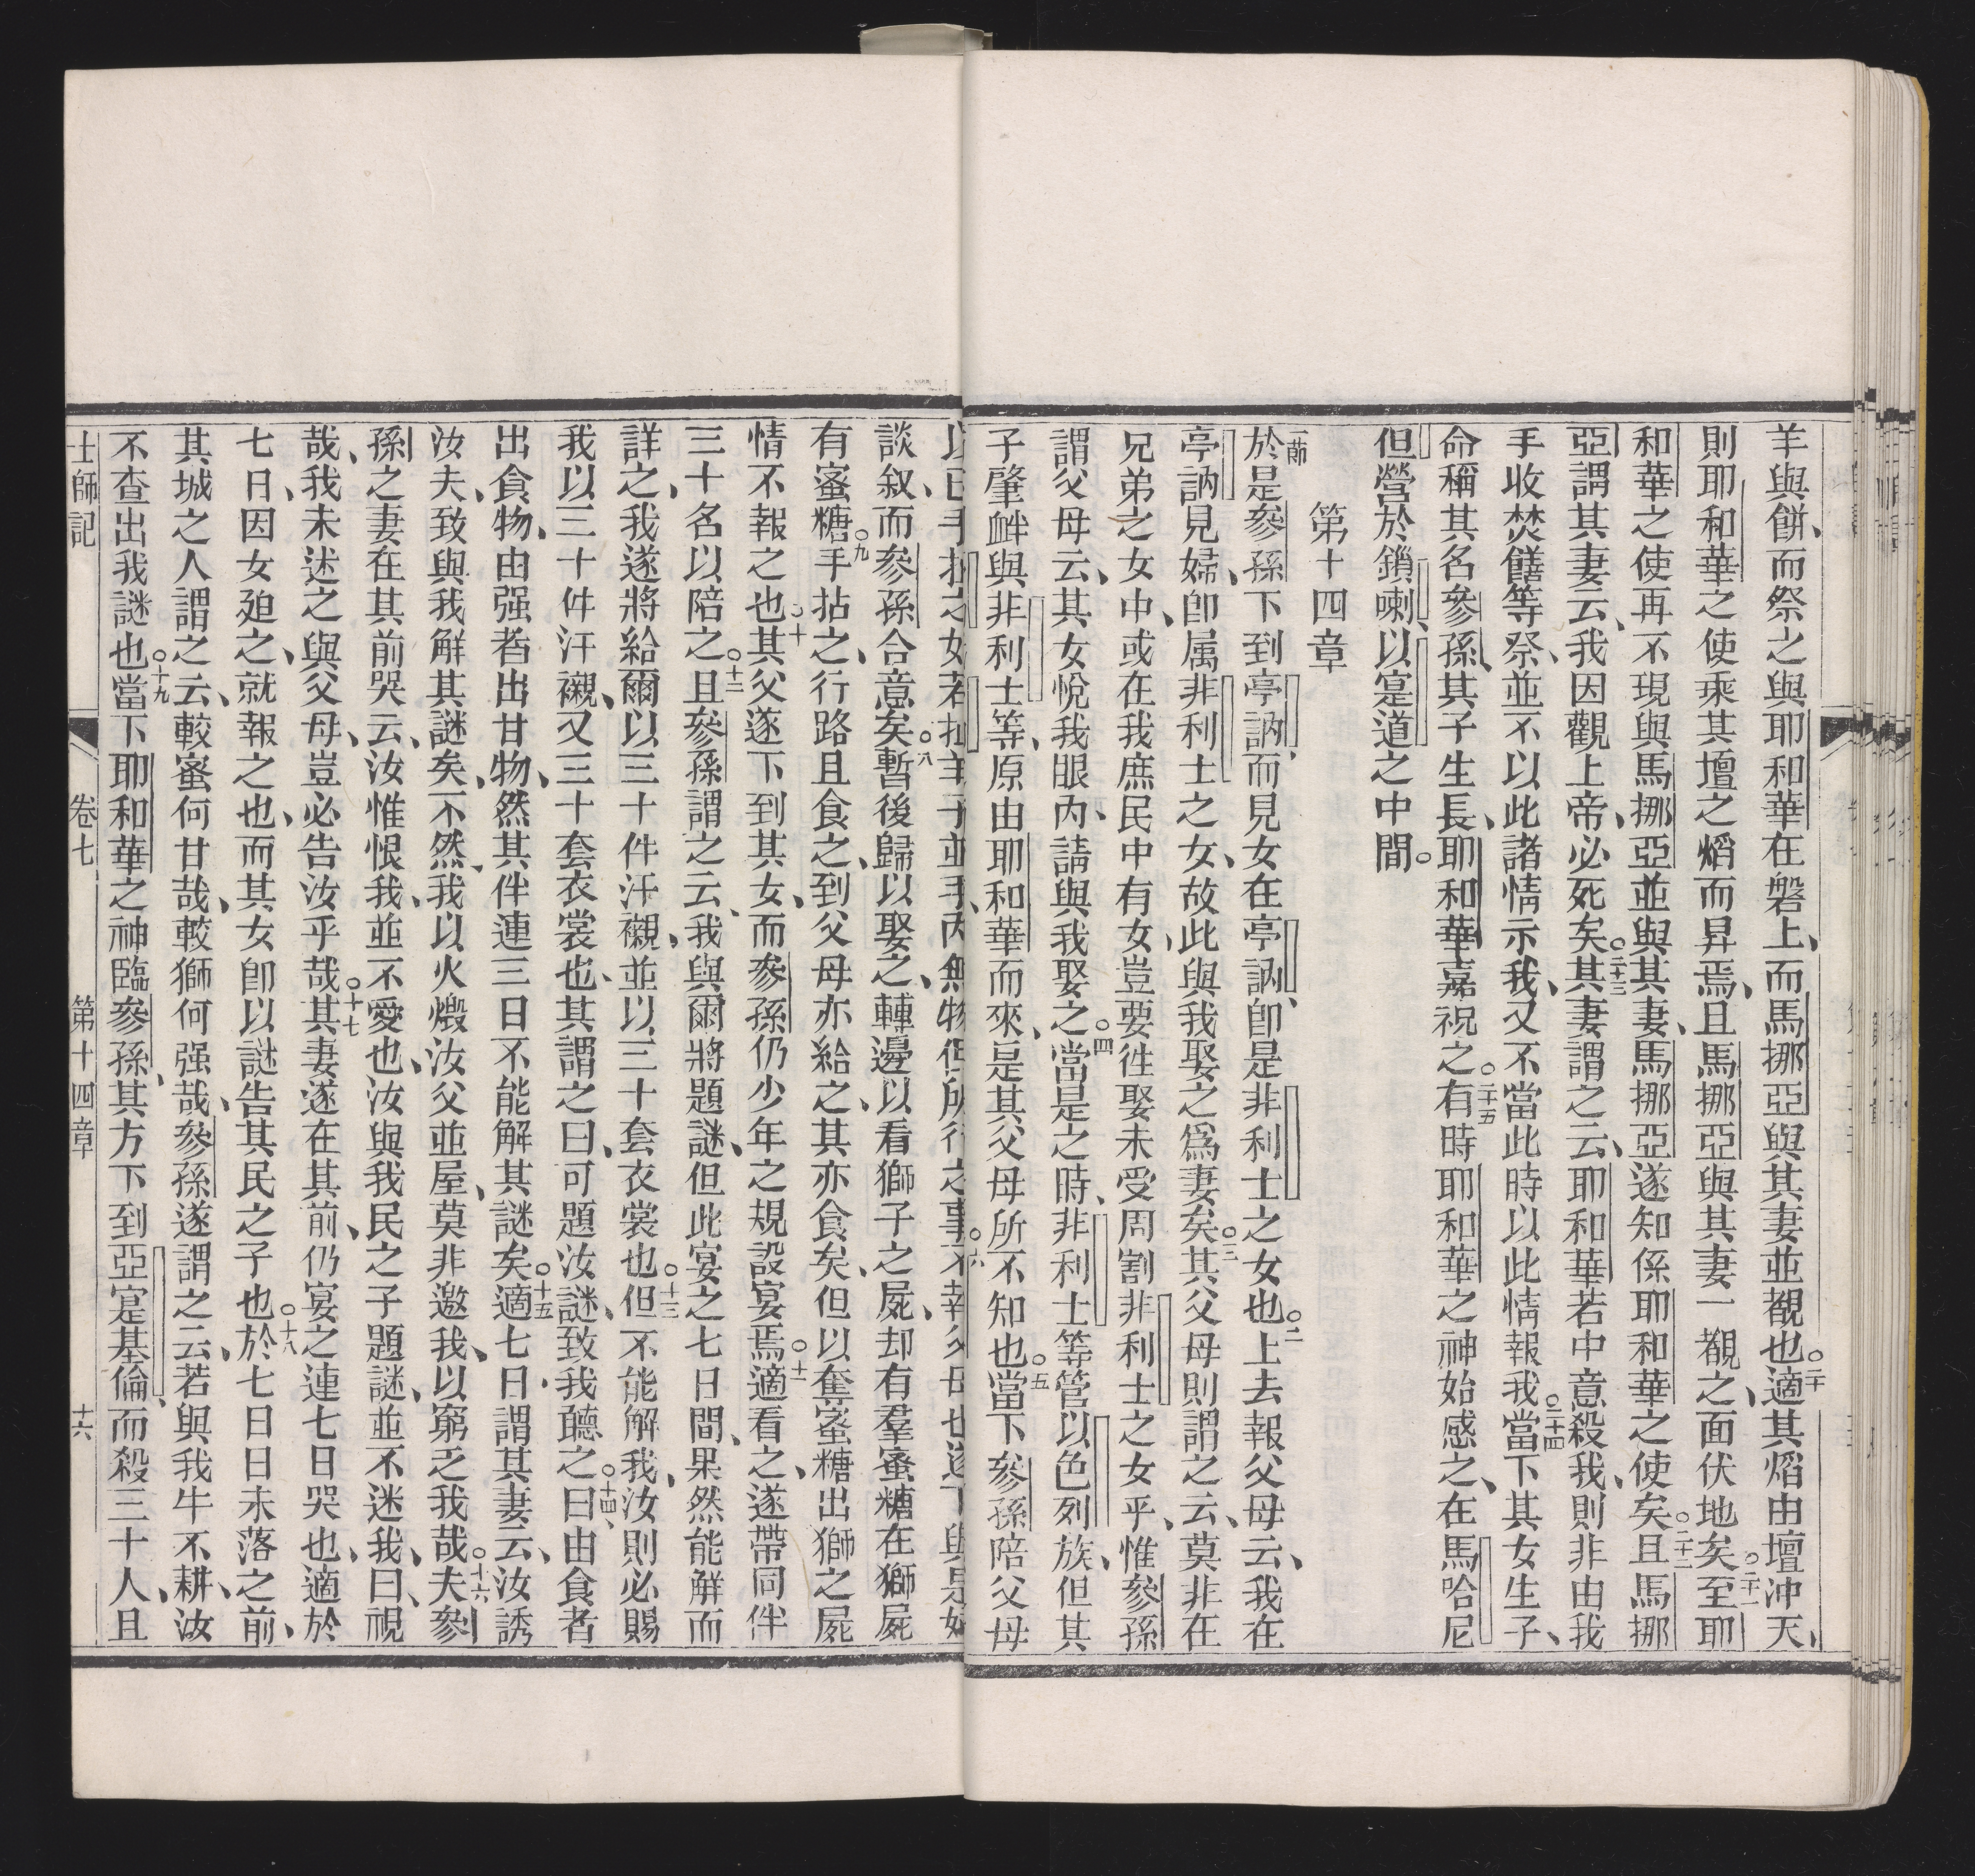 羊與餅、而祭之與耶和華在磐上、而馬挪亞與其妻並覩也○二十適其熖由壇沖天、
則耶和華之使乘其壇之熖而昇焉、且馬挪亞與其妻一覩之、面伏地矣○二十一至耶
和華之使再不現與馬挪亞並與其妻、馬挪亞遂知係耶和華之使矣○二十二且馬挪
亞謂其妻云、我因觀上帝、必死矣○二十三其妻謂之云、耶和華若中意殺我、則非由我
手收焚饍等祭、並不以此諸情示我、又不當此時以此情報我○二十四當下其女生子、
命稱其名參孫、其子生長、耶和華嘉祝之○二十五有時耶和華之神始感之、在馬哈尼
但營於鎖喇、以寔道之中間。
第十四章
一節於是參孫下到亭訥、而見女在亭訥、卽是非利士之女也○二上去報父母云、我在
亭訥見婦、卽属非利士之女、故此與我娶之爲妻矣○三其父母則謂之云、莫非在
兄弟之女中、或在我庶民中有女、豈要徃娶未受周割非利士之女乎、惟參孫
謂父母云、其女悅我眼內、請與我娶之○四當是之時、非利士等管以色列族、但其
子肇衅與非利士等、原由耶和華而來、是其父母所不知也○五當下參孫陪父母
以己手扯之如若扯羊子並手內無物但所行之事不幸父母也遂下與是婦
談叙、而參孫合意矣○八暫後歸以娶之、轉邊以看獅子之屍、却有羣蜜糖在獅屍
有蜜糖○九手拈之、行路且食之、到父母亦給之、其亦食矣、但以奪蜜糖出獅之屍
情不報之也○十其父遂下到其女、而參孫仍少年之規設宴焉○十一適看之、遂帶同伴
三十名以陪之○十二且參孫謂之云、我與爾將題謎、但此宴之七日間、果然能解而
詳之、我遂將給爾以三十件汗襯、並以三十套衣裳也○十三但不能解我、汝則必賜
我以三十件汗襯、又三十套衣裳也、其謂之曰、可題汝謎、致我聽之○十四曰、由食者
出食物、由强者出甘物、然其伴連三日不能解其謎矣○十五適七日、謂其妻云、汝誘
汝夫、致與我解其謎矣、不然、我以火燬汝父並屋、莫非邀我、以窮乏我哉○十六夫參
孫之妻在其前哭云、汝惟恨我、並不愛也、汝與我民之子題謎、並不述我、曰、視
哉、我未述之與父母、豈必告汝乎哉○十七其妻遂在其前、仍宴之連七日哭也、適於
七日、因女廹之、就報之也、而其女卽以謎告其民之子也○十八於七日日未落之前、
其城之人謂之云、較蜜何甘哉、較獅何强哉、參孫遂謂之云若與我牛不耕、汝
不查出我謎也○十九當下耶和華之神臨參孫、其方下到亞寔基倫、而殺三十人、且
士師記 卷七 第十四章 十六